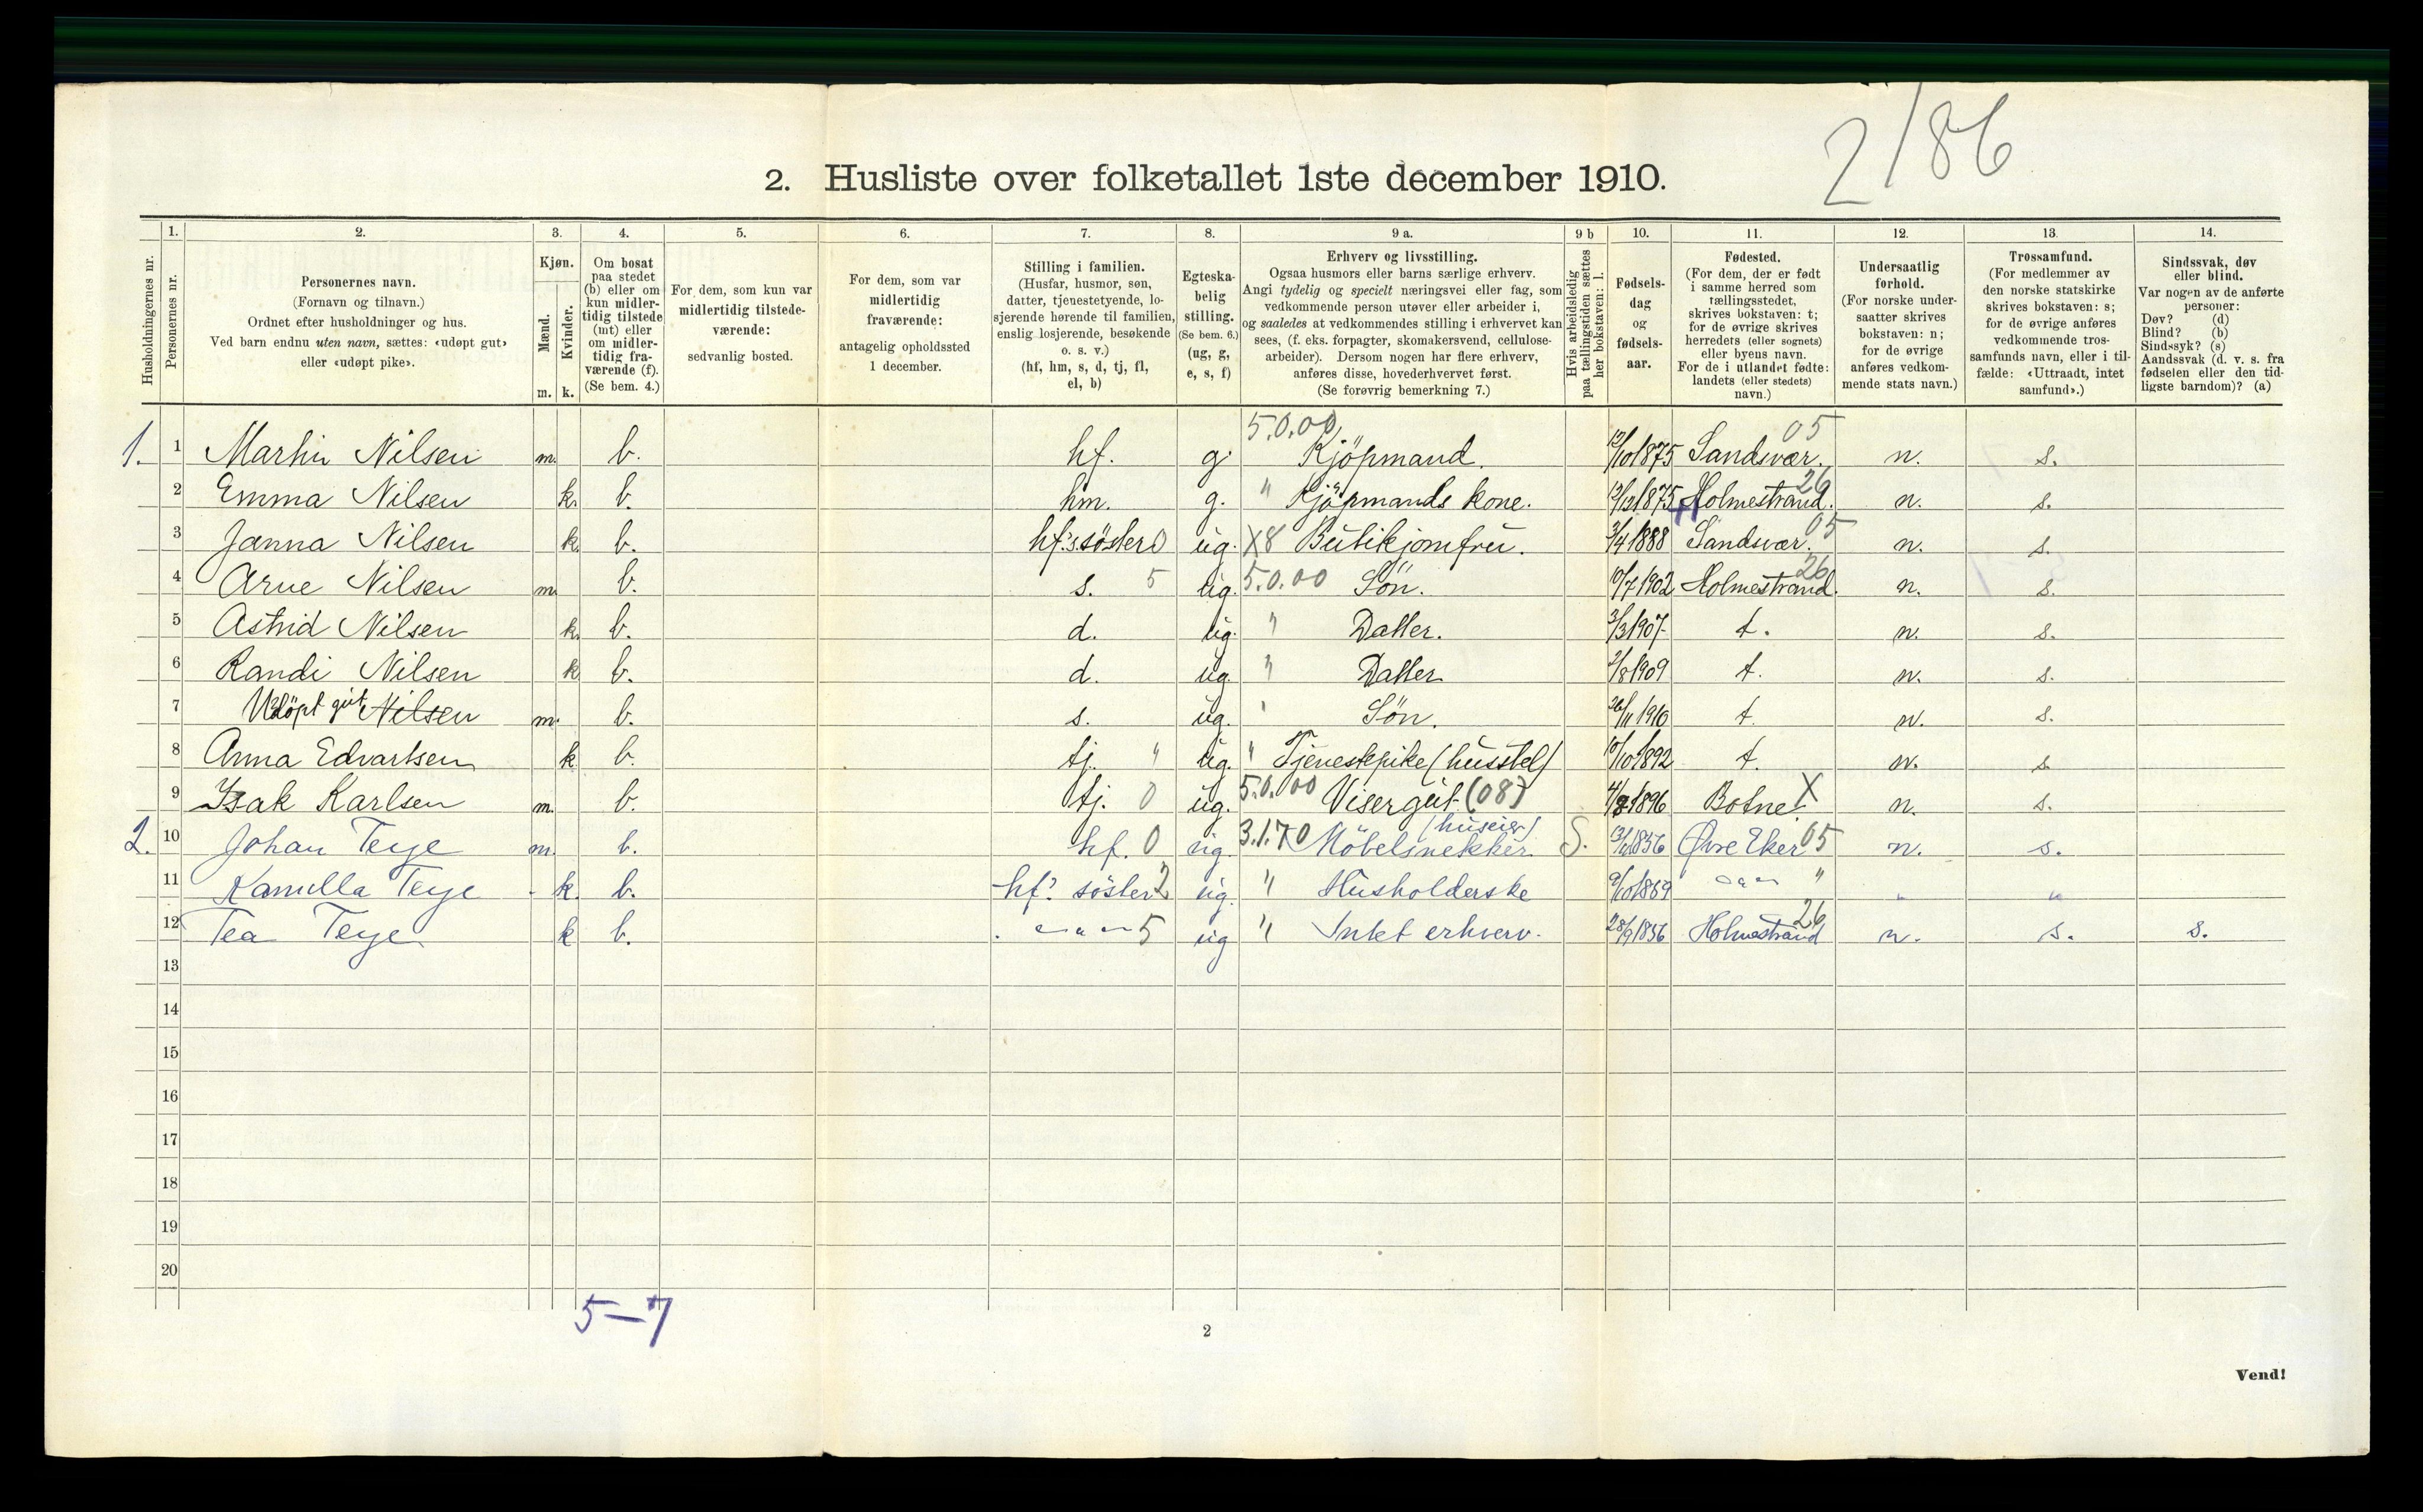 2/86
2. Husliste over folketallet 1ste december 1910.
Husholdningernes nr.
1. Personernes nr.
2. Personernes navn.
(Fornavn og tilnavn.)
Ordnet efter husholdninger og hus.
Ved barn endnu uten navn, sættes: «udøpt gut»
eller «udøpt pike».
3. Kjøn.
Mænd. m.
Kvinder. k.
4. Om bosat
paa stedet
(b) eller om
kun midler-
tidig tilstede
(mt) eller
om midler-
tidig fra-
værende (f).
(Se bem. 4.)
5. For dem, som kun var
midlertidig tilstede-
værende:
sedvanlig bosted.
6. For dem, som var
midlertidig
fraværende:
antagelig opholdssted
1 december.
7. Stilling i familien.
(Husfar, husmor, søn,
datter, tjenestetyende, lo-
sjerende hørende til familien,
enslig losjerende, besøkende
o. s. v.)
(hf, hm, s, d, tj, fl,
el, b)
8. Egteska-
belig
stilling.
(Se bem. 6.)
(ug, g,
e, s, f)
9 a. Erhverv og livsstilling.
Ogsaa husmors eller barns særlige erhverv.
Angi tydelig og specielt næringsvei eller fag, som
vedkommende person utøver eller arbeider i,
og saaledes at vedkommendes stilling i erhvervet kan
sees, (f. eks. forpagter, skomakersvend, cellulose-
arbeider). Dersom nogen har flere erhverv,
anføres disse, hovederhvervet først.
(Se forøvrig bemerkning 7.)
9 b Hvis arbeidsledig
paa tællingstiden sættes
her bokstaven: l.
10. Fødsels-
dag
og
fødsels-
aar.
11. Fødested.
(For dem, der er født
i samme herred som
tællingsstedet,
skrives bokstaven: t;
for de øvrige skrives
herredets (eller sognets)
eller byens navn.
For de i utlandet fødte:
landets (eller stedets)
navn.)
12. Undersaatlig
forhold.
(For norske under-
saatter skrives
bokstaven: n;
for de øvrige
anføres vedkom-
mende stats navn.)
13. Trossamfund.
(For medlemmer av
den norske statskirke
skrives bokstaven: s;
for de øvrige anføres
vedkommende tros-
samfunds navn, eller i til-
fælde: «Uttraadt, intet
samfund».)
14. Sindssvak, døv
eller blind.
Var nogen av de anførte
personer:
Døv? (d)
Blind? (b)
Sindssyk? (s)
Aandssvak (d. v. s. fra
fødselen eller den tid-
ligste barndom)? (a)
5.0.00 05
1. 1 Martin Nilsen m. b. hf. g. Kjöpmand. 12/10 1875 Sandsvær. n. s.
2 Emma Nilsen k. b. hm. g. " Kjöpmands kone. 12/12 1875 Holmestrand. 26 n. s.
3 Janna Nilsen k. b. hf.s söster 0 ug. X8 Butikjomfru. 3/4 1888 Sandsvær. 05 n. s.
4 Arne Nilsen m. b. s. 5 ug. 5.0.00 Sön. 10/7 1902 Holmestrand. 26 n. s.
5 Astrid Nilsen k. b. d. ug. " Datter. 3/3 1907 t. n. s.
6 Randi Nilsen k b. d. ug. " Datter /8 1909 t. n. s.
7 Udöpt gut Nilsen m. b. s. ug. " Sön. 26/11 1910 t. n. s.
8 Anna Edvartsen k b. tj. " ug. " Tjenestepike (husstel) 10/10 1892 t. n. s
9 Isak Karlsen m. b. tj. 0 ug. 5.0.00 Visergut (08) 4/8 1896 Botne. X n. s.
2. 10 Johan Teye m. b. hf. 0 ug. 3.1.70 Möbelsnekker (huseier) S. 1856 Øvre Eker 05 n. s.
11 Kamilla Teye k. b. hf.s söster 2 ug. " Husholderske 9/10 1859 " " "
12 Tea Teye k b. 5 ug " Intet erhverv. 28/9 1856 Holmestrand 26 n. s. s.
13
14
15
16
17
18
19
20
5–7
2
Vend!